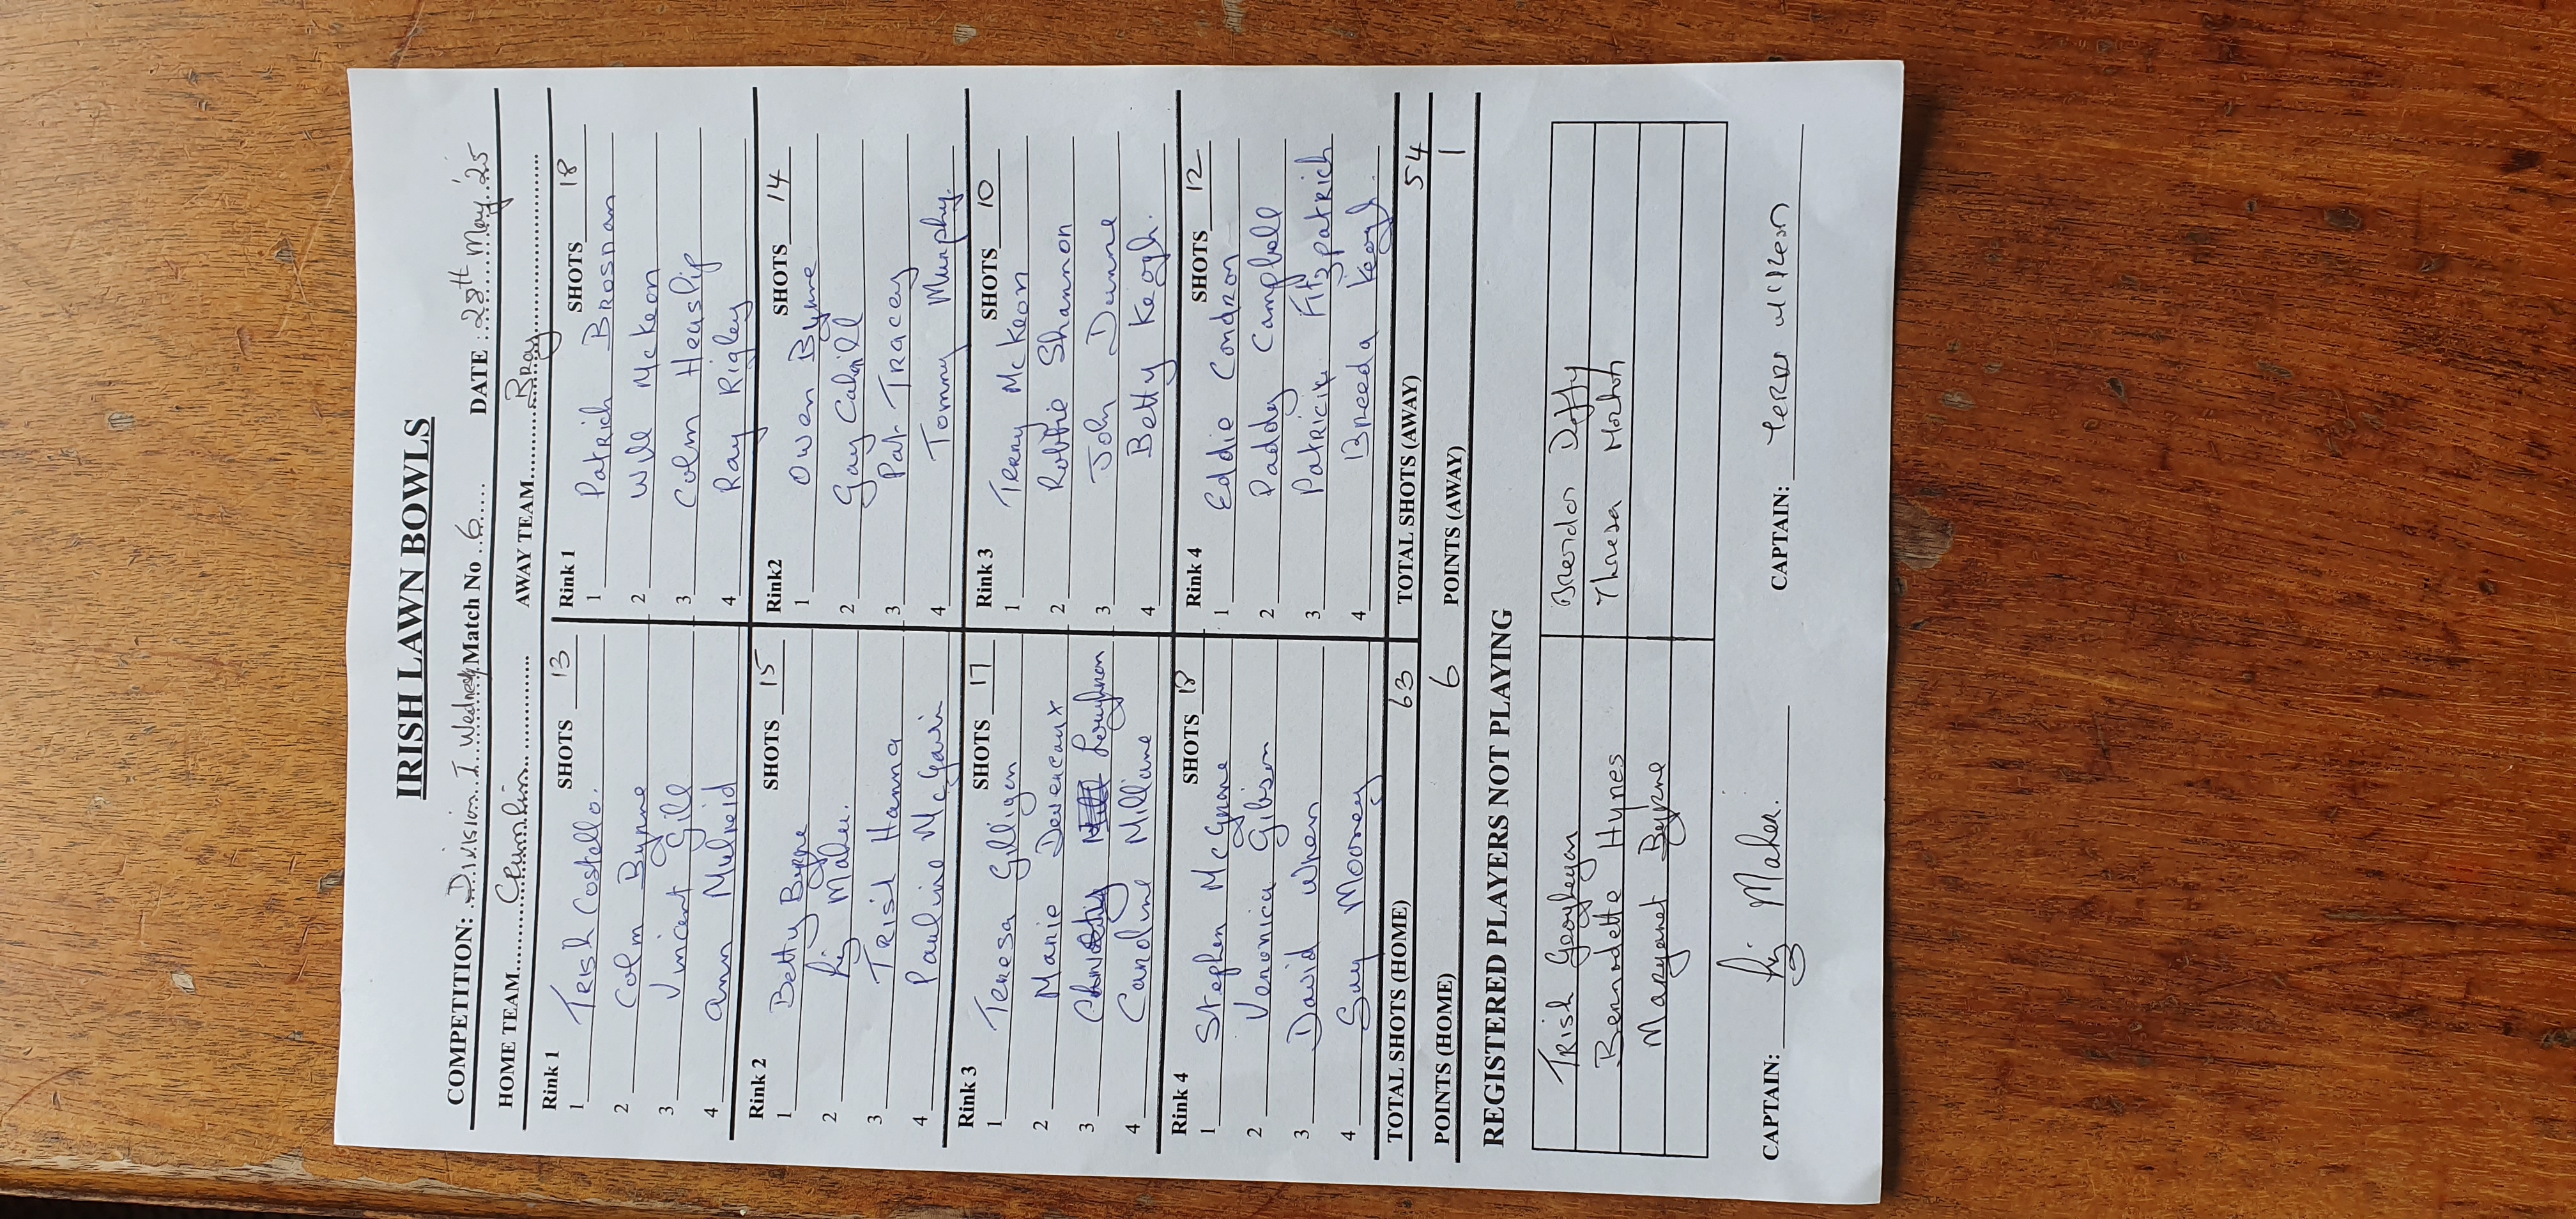 IRISH LAWN BOWLS
COMPETITION: Division 1 Wednesday Match No 6 DATE 28th May '25
HOME TEAM Crumlin AWAY TEAM Bray
Rink 1 SHOTS 13 Rink 1 SHOTS 18
1 Trish Costello. 1 Patrick Brosnan
2 Colm Byrne 2 Will McKeon
3 Vincent Gill 3 Colm Heaslip
4 Ann Mulreid 4 Ray Rigley
Rink 2 SHOTS 15 Rink2 SHOTS 14
1 Betty Byrne 1 Owen Byrne
2 Maher. 2 Gay Cahill
3 Trish Hanna 3 Pat Tracey
4 Pauline McGavin 4 Tommy Murphy.
Rink 3 SHOTS 17 Rink 3 SHOTS 10
1 Teresa Gilligan 1 Terry McKeon
2 Marie Devereaux 2 Robbie Shannon
3 Loughman 3 John Dunne
4 Caroline Milliane 4 Betty Keogh.
Rink 4 SHOTS 18 Rink 4 SHOTS 12
1 Stephen McGynne 1 Eddie Condron
2 Veronica Gibson 2 Paddy Campbell
3 David Wren 3 Patrick Fitzpatrick
4 Guy Mooney 4 Breeda Keogh.
TOTAL SHOTS (HOME) 63 TOTAL SHOTS (AWAY) 54
POINTS (HOME) 6 POINTS (AWAY) 1
REGISTERED PLAYERS NOT PLAYING
Trish Geoghegan Brendan Duffy
Bernadette Hynes Theresa
Margaret Byrne
CAPTAIN: Maher. CAPTAIN: